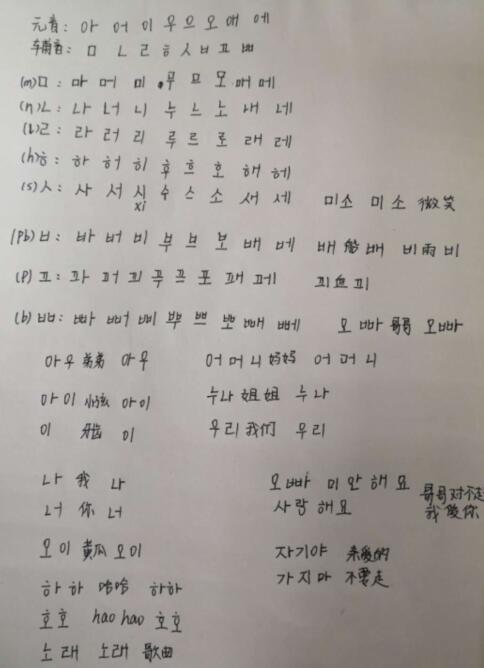 元音: 아 어 이 우 으 오 애 에
辅音: ㅁ ㄴ ㄹ ㅎ ㅅ ㅂ ㅍ ㅃ
(m)ㅁ: 마 머 미 무 므 모 매 메
(n)ㄴ: 나 너 니 누 느 노 내 네
(l)ㄹ: 라 러 리 루 르 로 래 레
(h)ㅎ: 하 허 히 후 흐 호 해 헤
(s)ㅅ: 사 서 시 수 스 소 새 세 미소 미소 微笑
xi
(pb)ㅂ: 바 버 비 부 브 보 배 베 배 船 배 비 雨 비
(p)ㅍ: 파 퍼 피 푸 프 포 패 페 피 血 피
(b)ㅃ: 빠 뻐 삐 뿌 쁘 뽀 빼 뻬 오빠 哥哥 오빠
아우 弟弟 아우 어머니 妈妈 어머니
아이 小孩 아이 누나 姐姐 누나
이 牙齿 이 우리 我們 우리
나 我 나 오빠 미안해요 哥哥对不起
너 你 너 사랑해요 我愛你
오이 黄瓜 오이 자기야 亲爱的
하하 哈哈 하하 가지마 不要走
호호 hao hao 호호
노래 노래 歌曲